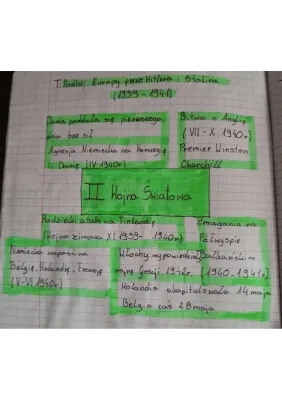 T: Podbój Europy przez Hitlera i Stalina
(1939-1941)
Dania poddała się pierwszego
dnia bez sił
Agresja Niemiecka na Norwegię
i Danię (IV 1940r)
Bitwa o Anglię
(VII - X. 1940r.)
Premier Winston
Churchill
II Wojna Światowa
Radziecki atak na Finlandię
(wojna zimowa XI 1939- 1940r)
Zmagania na
Półwyspie
Bałkańskim
(1940-1941r.)
Niemiecka napaść na
Belgię, Holandię, Francję
(V-VI 1940r)
Włochy wypowiedziały
wojnę Grecji 1940r.
Holandia skapitulowała 14 maja
Belgia zaś 28 maja